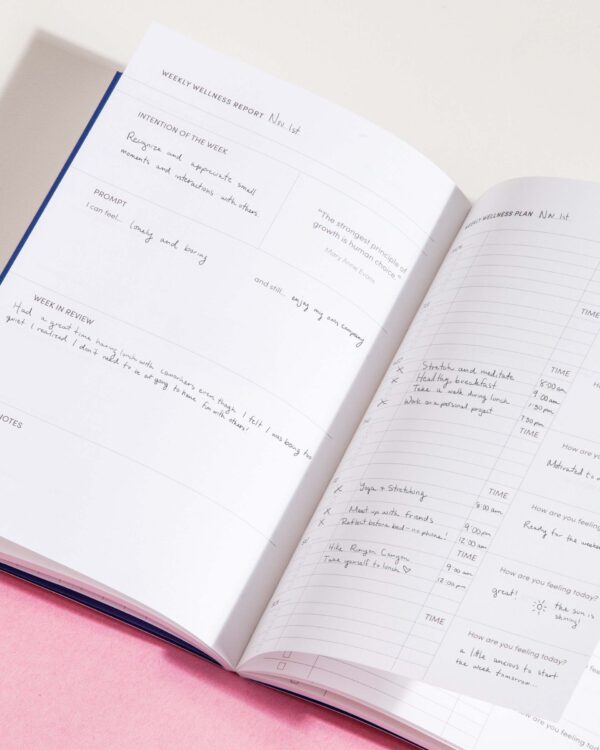 WEEKLY WELLNESS REPORT Nov. 1st
INTENTION OF THE WEEK
Recognize and appreciate small
moments and interactions with others.
"The strongest principle of
growth is human choice."
Mary Anne Evans
PROMPT
I can feel... lonely and boring
and still... enjoy my own company
WEEK IN REVIEW
Had a great time having lunch with coworkers even though I felt I was being too
quiet. I realized I don't need to be
to have fun with others!
NOTES
WEEKLY WELLNESS PLAN Nov. 1st
TIME
TIME
x Stretch and meditate 8:00 am
x Healthy breakfast 9:00 am
Take a walk during lunch 1:30 pm
x Work on a personal project 7:30 pm
TIME
How are you
Motivated to
x Yoga + Stretching 8:00 am
TIME
x Meet up with friends 9:00 pm
x Reflect before bed - no phone! 12:00 am
How are you feeling
Ready for the weekend
TIME
Hike Runyon Canyon 9:00 am
Take yourself to lunch ♡ 12:00 pm
How are you feeling today?
great! the sun is
shining!
TIME
How are you feeling today?
a little anxious to start
the week tomorrow...